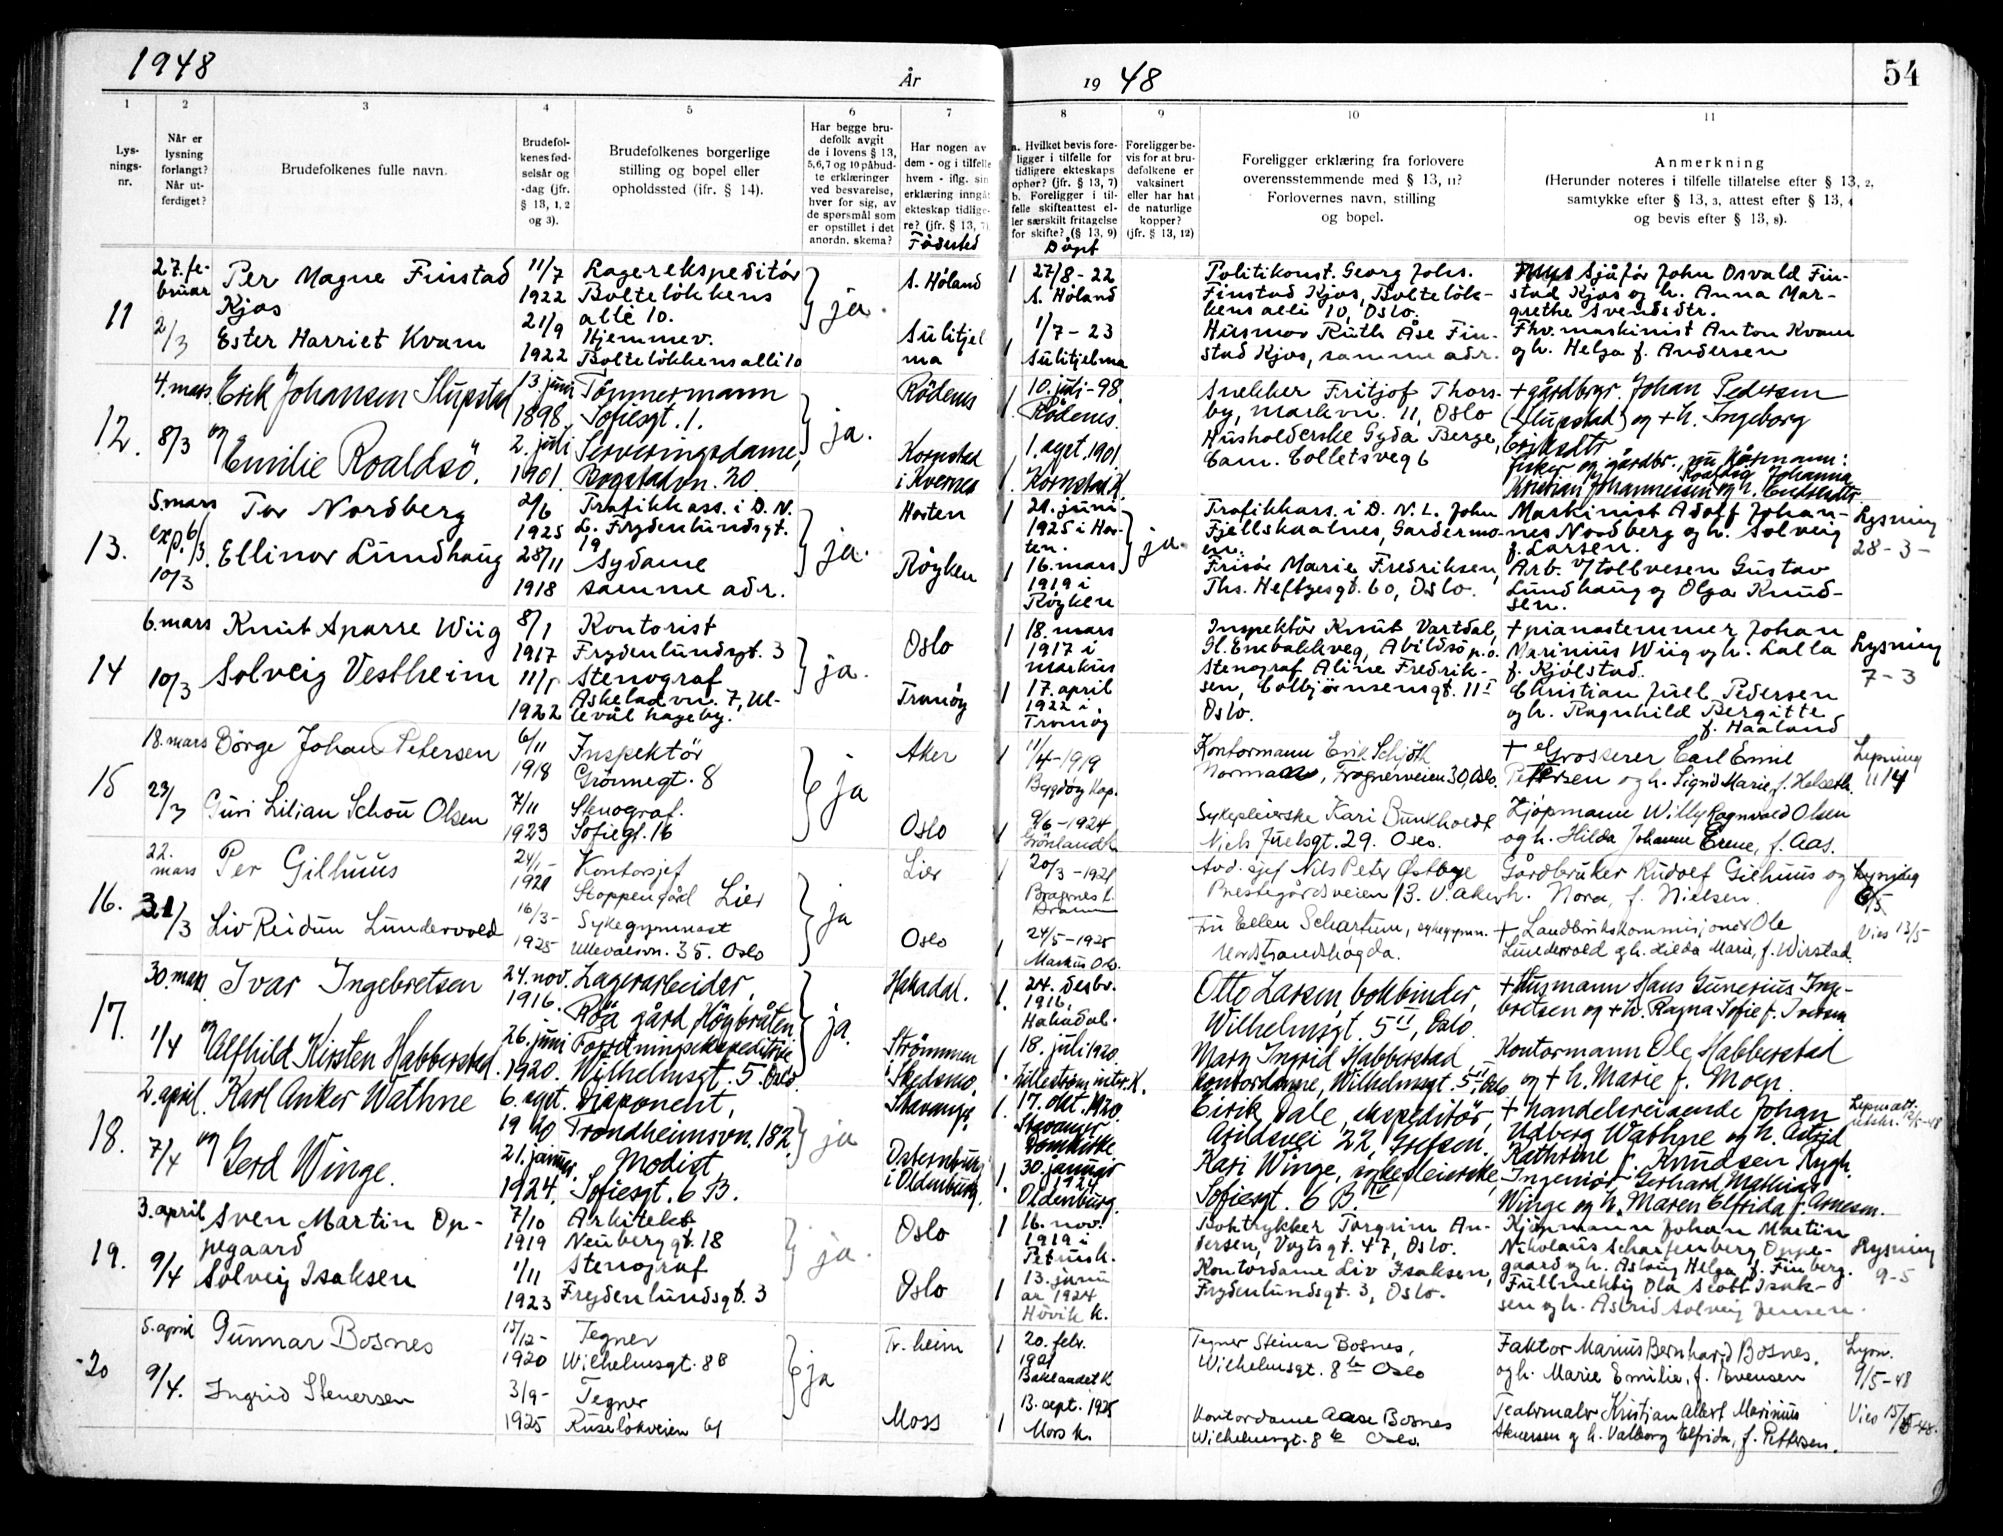 1948
År
19 48
54
1
2
3
4
5
6
7
8
9
10
11
Lys-
nings-
nr.
Når er
lysning
forlangt?
Når ut-
ferdiget?
Brudefolkenes fulle navn.
Brudefol-
kenes fød-
selsår og
-dag (jfr.
§ 13, 1, 2
og 3).
Brudefolkenes borgerlige
stilling og bopel eller
opholdssted (jfr. § 14).
Har begge bru-
defolk avgit
de i lovens § 13,
5, 6, 7 og 10 påbud-
te erklæringer
ved besvarelse,
hver for sig, av
de spørsmål som
er opstillet i det
anordn. skema?
Har nogen av
dem - og i tilfelle
hvem - iflg. sin
erklæring inngått
ekteskap tidlige-
re? (jfr. § 13, 7)
Fødested
a. Hvilket bevis fore-
ligger i tilfelle for
tidligere ekteskaps
ophør? (jfr. § 13, 7)
b. Foreligger i til-
felle skifteattest el-
ler særskilt fritagelse
for skifte? (§ 13, 9)
Døpt
Foreligger be-
vis for at bru-
defolkene er
vaksinert
eller har hat
de naturlige
kopper?
(jfr. § 13, 12)
Foreligger erklæring fra forlovere
overensstemmende med § 13, 11?
Forlovernes navn, stilling
og bopel.
Anmerkning
(Herunder noteres i tilfelle tillatelse efter § 13, 2,
samtykke efter § 13, 3, attest efter § 13, 4
og bevis efter § 13, 8).
11
27. fe-
bruar
2/3
Per Magne Finstad
Kjos
Ester Harriet Kvam
11/7
1922
21/9
1922
Lagerekspeditør
Bolteløkkens
alle 10.
Hjemmev.
Bolteløkkens alli 10
ja.
S. Høland
Sulitjel
ma
27/8 - 22
S. Høland
1/7 - 23
Sulitjelma
Politikonst. Georg Johs.
Finstad Kjos, Bolteløk-
kens alli 10, Oslo.
Husmor Ruth Åse Fin-
stad Kjos, samme adr.
Sjåfør John Osvald Fin-
stad Kjos og h. Anna Mar-
grethe Svendsdtr.
Fhv. maskinist Anton Kvam
og h. Helga f. Andersen
12.
4. mars
8/3
Erik Johansen Slupstad
og
Emilie Roaldsø.
13. juni
1898.
2. juli
1901.
Tømmermann
Sofiesgt. 1.
Serveringsdame,
Bogstadvn. 30.
ja.
Rødenes
Kornstad
i Kvernes
10. juli - 98.
Rødenes.
1. agst. 1901.
Kornstad K.
Snekker Fritjof Thors-
by, markvn. 11, Oslo
Husholderske Gyda Berge,
Cam. Colletsveg 6
+ gårdbrgr. Johan Pedersen
(Slupstad) og + h. Ingeborg
Eriksdtr
fisker og gårdbr., nu kårmann:
Kristian Johannessen Roaldsø og h. Johanna Endresdtr.
13.
5. mars
exp. 6/3
10/3
Tor Nordberg
Ellinor Lundhaug
21/6
1925
28/11
1918
Trafikkass. i D. N.
L. Frydenlundsgt.
19
Sydame
samme adr.
ja.
Horten
Røyken
21. juni
1925 i Hor-
ten.
16. mars
1919 i
Røyken
ja.
Trafikkass. i D. N. L. John
Fjellskaalnes, Gardermo-
en.
Frisør Marie Fredriksen,
Ths. Heftyesgt. 60, Oslo.
Maskinist Adolf Johan-
nes Nordberg og h. Solveig
f. Larsen.
Arb. v/ tollvesen Gustav
Lundhaug og Olga Knud-
sen.
Lysning
28 - 3 -
14
6. mars
10/3
Knut Sparre Wiig
Solveig Vestheim
8/1
1917
11/1
1922
Kontorist
Frydenlundsgt. 3
Stenograf
Askeladvn. 7, Ul-
levål hageby.
ja.
Oslo
Tranøy
18. mars
1917 i
markus
17. april
1922 i
Tranøy
Inspektør Knut Vartdal,
Gl. Enebakkveg, Abildsø p.o.
Stenograf Aline Fredrik-
sen, Colbjørnsensgt. 11 I
Oslo.
+ pianostemmer Johan
Marinius Wiig og h. Lalla
f. Kjølstad.
Christian Juel Pedersen
og h. Ragnhild Bergitte
f. Haaland
Lysning
7 - 3
15
18. mars
23/3
Børge Johan Petersen
Guri Lilian Schou Olsen
6/11
1918
7/11
1923
Inspektør
Grønnegt. 8
Stenograf.
Sofiegt. 16
ja
Aker
Oslo
11/4 - 1919
Bygdøy Kap.
9/6 - 1924
Grønland k.
Kontormann Erik Schjøth
Normann, Frognerveien 30, Oslo.
Sykepleierske Kari Bunkholdt
Niels Juelsgt. 29. Oslo.
+ Grosserer Carl Emil
Petersen og h. Signe Marie, f. Helseth.
Kjøpmann Willy Ragnvald Olsen
og h. Hilda Johanne Erene, f. Aas.
Lysning
11/4
16.
22.
mars
31/3
Per Gilhuus
Liv Reidun Lundervold
24/1 -
1921
16/3 -
1925
Kontorsjef
Stoppengård Lier
Sykegymnast
Ullevålsvn. 35. Oslo
ja
Lier
Oslo
20/3 - 1921
Bragernes k.
Dramm
24/5 - 1925
Markus Oslo.
Avd. sjef Nils Peter Østbye
Prestegårdsveien 13. V. Aker
Fru Ellen Schartum, sykegymn.
Nordstrandshøgda.
Gårdbruker Rudolf Gilhuus og
h. Nora, f. Nielsen.
+ Landbrukskommisjonær Ole
Lundervold og h. Hilda Marie, f. Wirstad.
Lysning
6/5
Vies 13/5
17.
30. mars
1/4
Ivar Ingebretsen
og
Alfhild Kirsten Habberstad.
24. nov.
1916.
26. juni
1920.
Lagerarbeider,
Røa gård Høybråten
Forretningsekspeditrise
Wilhelmsgt. 5. Oslo
ja.
Hakadal.
Strømmen
i Skedsmo
24. desbr.
1916.
Hakadal.
18. juli 1920.
Lillestrøm inter. K.
Otto Larsen, bokbinder,
Wilhelmsgt. 5 II, Oslo.
Mary Ingrid Habberstad
kontordame, Wilhelmsgt. 5 II Oslo
+ Husmann Hans Gunerius Inge-
bretsen og + h. Ragna Sofie f. Iversen
Kontormann Ole Habberstad
og + h. Marie f. Moen.
18.
2. april
7/4
Karl Anker Wathne
og
Gerd Winge.
6. agst.
1920
21. januar
1924.
Disponent,
Trondheimsvn. 182
Modist,
Sofiesgt. 6 B.
ja
Stavanger
Osternburg
i Oldenburg.
17. okt. 1920.
Stavanger
Domkirke
30. januar
1924
Oldenburg.
Eirik Dale, ekspeditør,
Arildsvei 22, Grefsen.
Kari Winge, sykepleierske,
Sofiesgt. 6 B. IV
+ handelsreisende Johan
Udberg Wathne og h. Astrid
Kathrine f. Knudsen Rygh.
Ingeniør Gerhard Mathias
Winge og h. Maren Elfrida f. Arnesen.
Lysn. att.
utskr. 12/5 - 48
19.
3. april
9/4
Sven Martin Op-
pegaard
Solveig Isaksen
7/10
1919
1/11
1923
Arkitekt
Neuberggt. 18
Stenograf
Frydenlundsgt. 3
ja.
Oslo
Oslo
16. nov.
1919 i
Petrusk.
13. janu
ar 1924
Høvik k.
Boktrykker Torgrim An-
dersen, Vogtsgt. 47, Oslo.
Kontordame Liv Isaksen,
Frydenlundsgt. 3, Oslo.
Kjøpmann Johan Martin
Nikolaus Scharfenberg Oppe-
gaard og h. Aslaug Helga f. Finberg.
Fullmektig Ola Scott Isak-
sen og h. Astrid Solveig Jensen.
Lysning
9 - 5
20
5. april
9/4.
Gunnar Bosnes
Ingrid Stenersen
15/12 -
1920
3/9 -
1925
Tegner
Wilhelmsgt. 8B
Tegner
Ruseløkveien 61
ja
Tr. heim
Moss
20. febr.
1921
Baklandet K
13. sept. 1925
Moss k.
Tegner Steinar Bosnes,
Wilhelmsgt. 8 b Oslo
Kontordame Aase Bosnes
Wilhelmsgt. 8 b Oslo.
Faktor Marius Bernhard Bosnes.
og h. Marie Emilie, f. Evensen
Teatermaler Kristian Albert Marinius
Stenersen og h. Valborg Elfrida, f. Pettersen.
Lysn.
9/5 - 48
Vies 15/5 - 48.